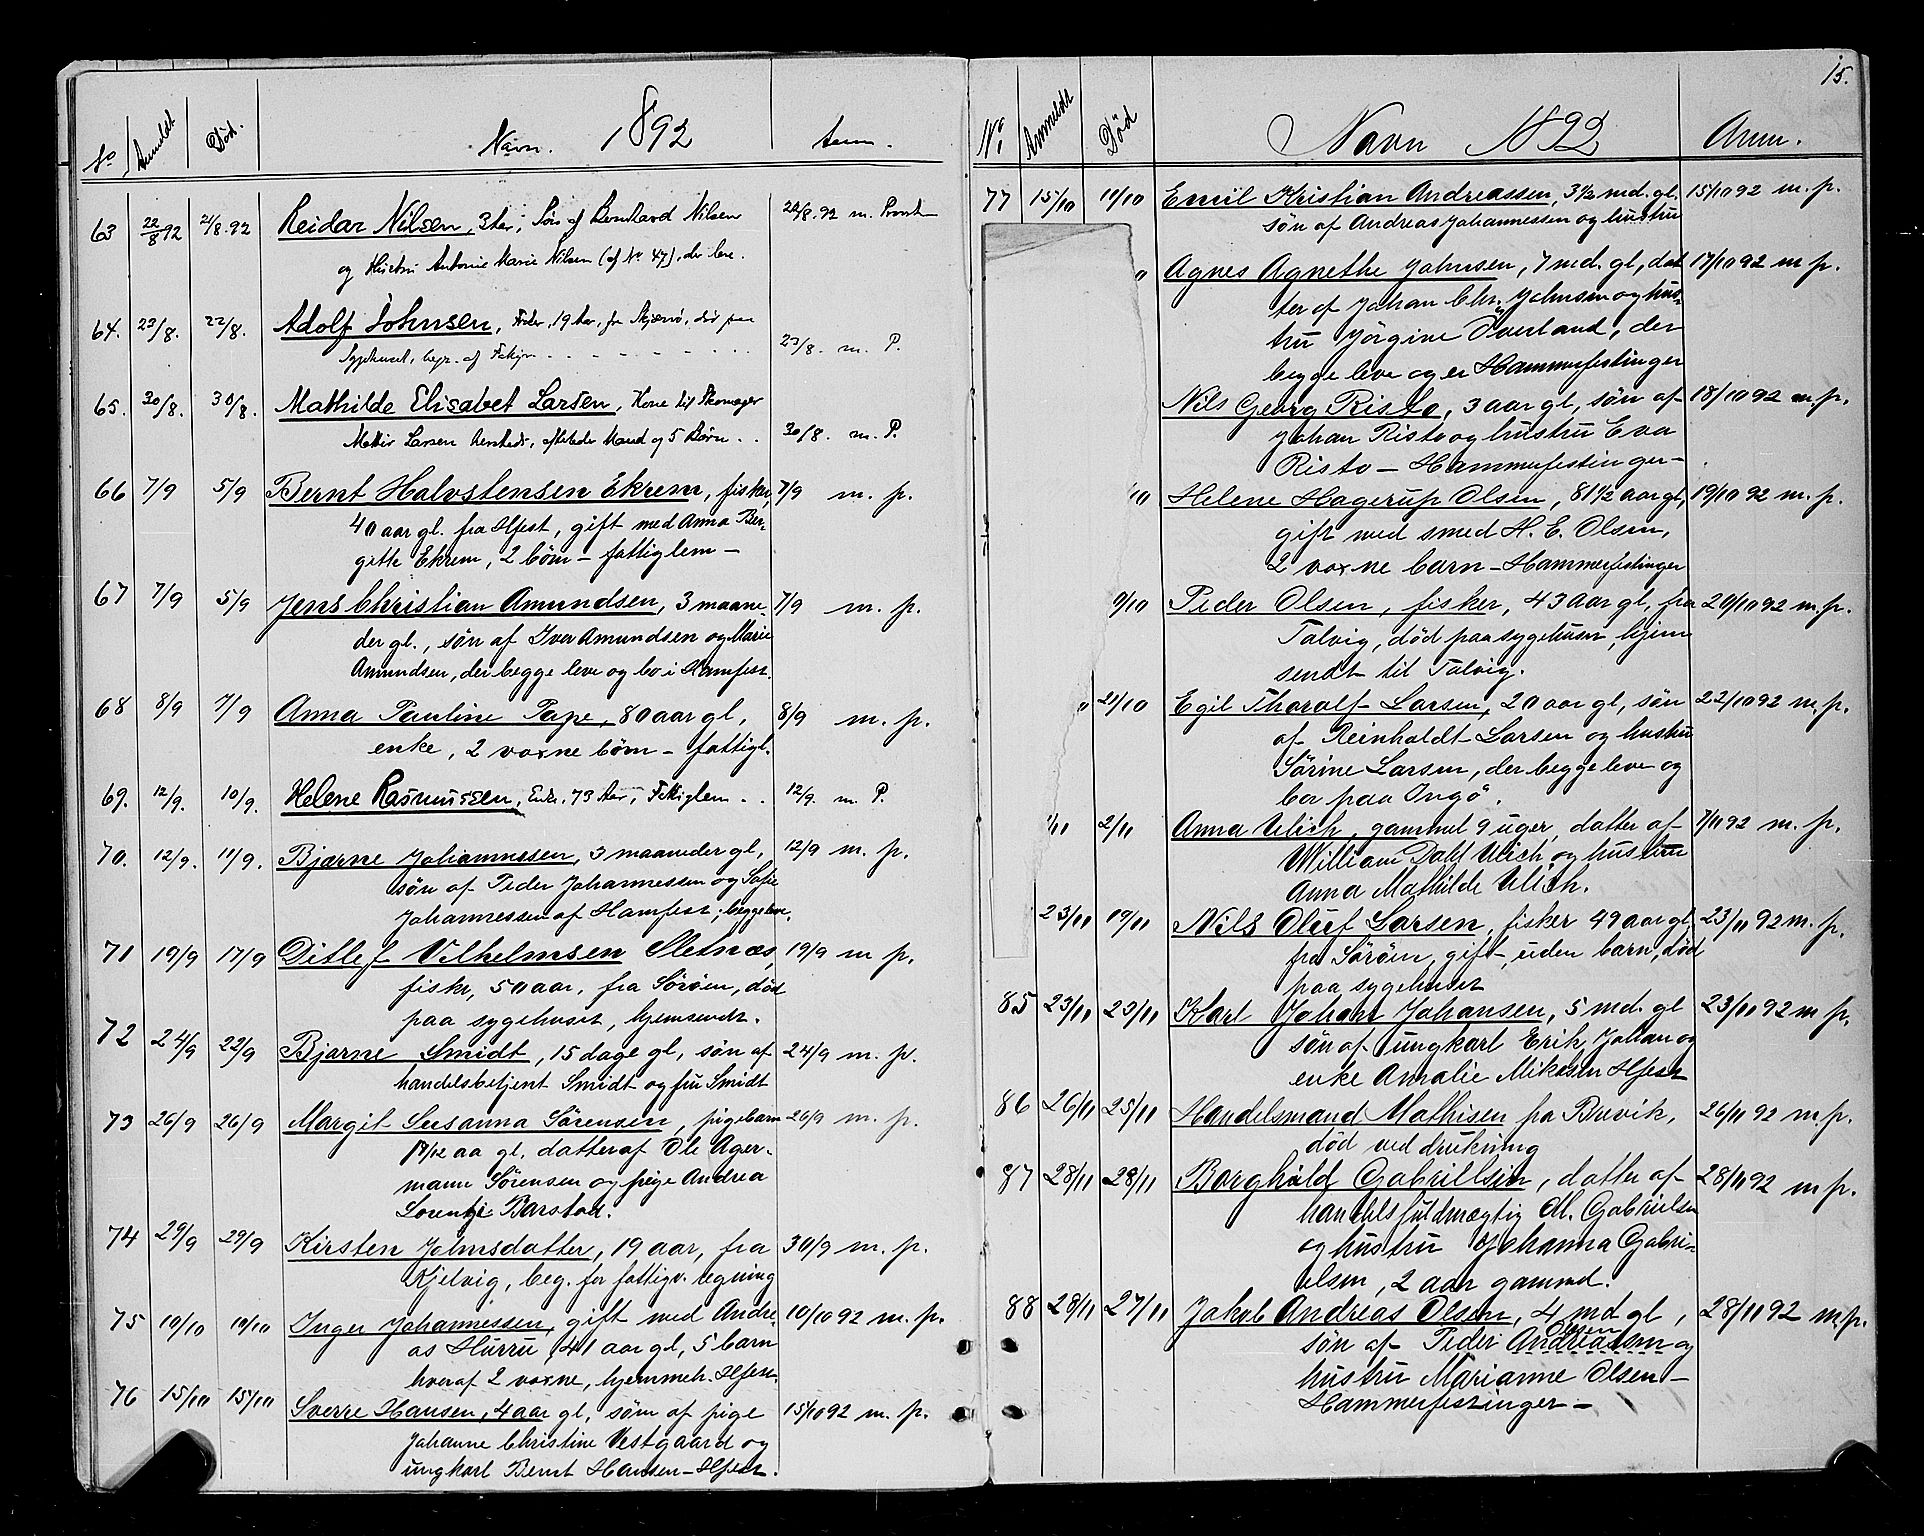 No Anmeldt Død. Navn. 1892 Anm.
63 22/8 92 21/8.92 Reidar Nilsen, 3 Aar, Søn af Bernhard Nilsen 22/8.92 m. Pronot
og Hustru Antonie Marie Nilsen (cf No 47), der leve.
64. 23/8. 22/8. Adolf Johnsen, 19 Aar, fra død paa
Sygehuset, begr. af 23/8. m. P.
65. 30/8. 30/8. Mathilde Elisabet Larsen, Kone til Skomager
Larsen efterlader Mand og 5 Børn . . 30/8. m. P.
66 7/9 5/9 Bernt Halvstensen Ekrem, fisker, 7/9 m. p.
40 aar gl. fra Hfest, gift med Anna Ber-
gitte Ekrem, 2 børn – fattiglem –
67 7/9 5/9 Jens Christian Amundsen, 3 maane- 7/9 m. p.
der gl., søn af Iver Amundsen og Marie
Amundsen, der begge leve og bo i Hamfest.
68 8/9 7/9 Anna Pauline Pape, 80 aar gl, 8/9 m. p.
enke, 2 voxne børn – fattigl.
69. 12/9. 10/9. Helene Rasmussen, Enke. 73 Aar, Fattiglem . . 12/9. m. P.
70. 12/9. 11/9. Bjarne Johannessen, 3 maaneder gl, 12/9 m. p.
søn af Peder Johannessen og Sofie
Johannessen af Hamfest; begge leve.
71 19/9 17/9 Ditlef Vilhelmsen Sletnæs, 19/9 m p.
fisker, 50 aar, fra Sørøen, død
paa sygehuset, hjemsendt.
72 24/9 22/9 Bjarne Smidt, 15 dage gl, søn af 24/9 m. p.
handelsbetjent Smidt og fru Smidt
73 26/9 26/9 Margit Susanna Sørensen, pigebarn 26/9 m. p.
aa gl. datter af Ole Ager-
mann Sørensen og pige Andrea
Lorentze Barstad.
74 29/9 29/9 Kirsten Johnsdatter, 19 aar, fra 30/9 m. p.
Kjelvig, beg. for fattigv. regning
75 10/10 10/10 Inger Johannessen, gift med Andre- 10/10 92 m. p.
as Hurru, 41 aar gl, 5 barn
hveraf 2 voxne, hjemmeh. Hfest.
76 15/10 15/10 Sverre Hansen, 4 aar gl, søn af pige 15/10 92 m. p.
Johanne Christine Vestgaard og
ungkarl Bernt Hansen – Hfest.
15.
No Anmeldt Død Navn 1892 Anm.
77 15/10 11/10 Emil Kristian Andreassen, 3½ md. gl. 15/10 92 m. p.
søn af Andreas Johannessen og hustru
Agnes Agnethe Johnsen, 7 md. gl, dat 17/10 92 m p.
ter af Johan Chr. Johnsen og hus-
tru Jørgine Överland, der
begge leve og er Hammerfestinger
Nils Georg Risto, 3 aar gl, søn af 18/10 92 m. p.
Johan Risto og hustru Eva
Risto – Hammerfestinger –
/10 Helene Hagerup Olsen, 81½ aar gl, 19/10 92 m. p.
gift med smed H. E. Olsen,
2 voxne barn – Hammerfestinger
/10 Peder Olsen, fisker, 43 aar gl, fra 20/10 92 m. p.
Talvig, død paa sygehuset, hjem
sendt til Talvig.
21/10 Egil Tharalf Larsen, 20 aar gl, søn 22/10 92 m. p.
af Reinholdt Larsen og hustru
Sörine Larsen, der begge leve og
bor paa Ingø.
/11 2/11 Anna Ulich, gammel 9 uger, datter af 7/11 92 m. p.
William Dahl Ulich og hustru
Anna Mathilde Ulich.
23/11 19/11 Nils Oluf Larsen, fisker 49 aar gl, 23/11 92 m. p.
fra Sørøen, gift, uden barn, død
paa sygehuset
85 23/11 23/11 Karl Johan Johansen, 5 md. gl 23/11 92 m p.
søn af ungkarl Erik Johan og
enke Amalie Mikkelsen Hfest
86 26/11 25/11 Handelsmand Mathisen fra Buvik, 26/11 92 m. p.
død ved drukning
87 28/11 28/11 Borghild Gabrillsen, datter af 28/11 92 m p.
handelsfuldmægtig M. Gabrielsen
og hustru Johanna Gabri-
elsen, 2 aar gammel.
88 28/11 27/11 Jakob Andreas Olsen, 4 md gl, 28/11 92 m. p.
Olsen
søn af Peder Andreassen og
hustru Marianne Olsen –
Hammerfestinger –